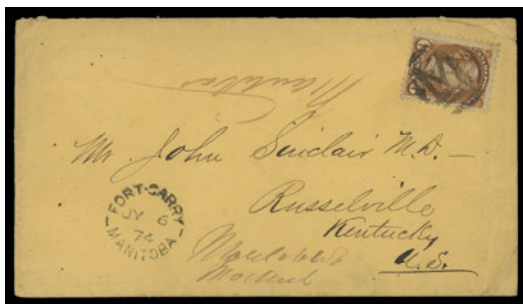 Manitoba
Mr. John Sinclair M.D. —
Russelville
Kentucky
U.S.
FORT-GARRY
JY 6
74
MANITOBA